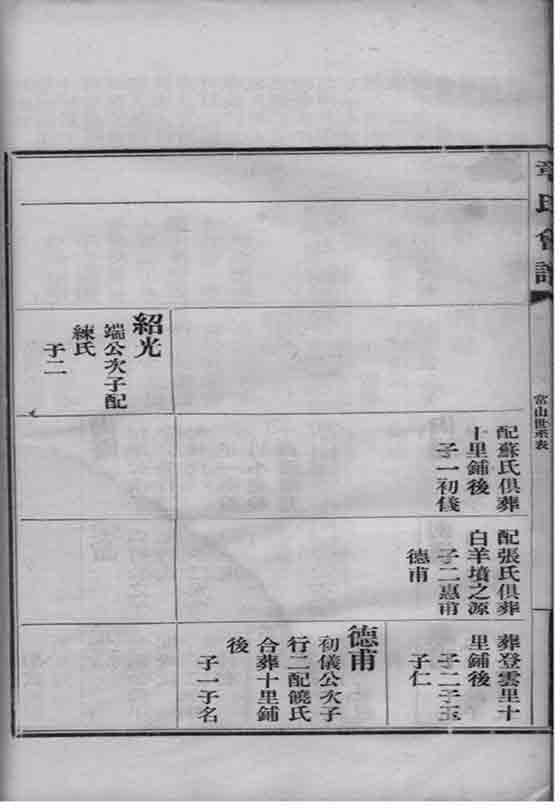 章氏會譜
常山世系表
紹光
端公次子配
練氏
子二
配蘇氏俱葬
十里鋪後
子一初儀
配張氏俱葬
白羊墳之源
子二惠甫
德甫
葬登雲里十
里鋪後
子二子玉
子仁
德甫
初儀公次子
行二配饒氏
合葬十里鋪
後
子一子名